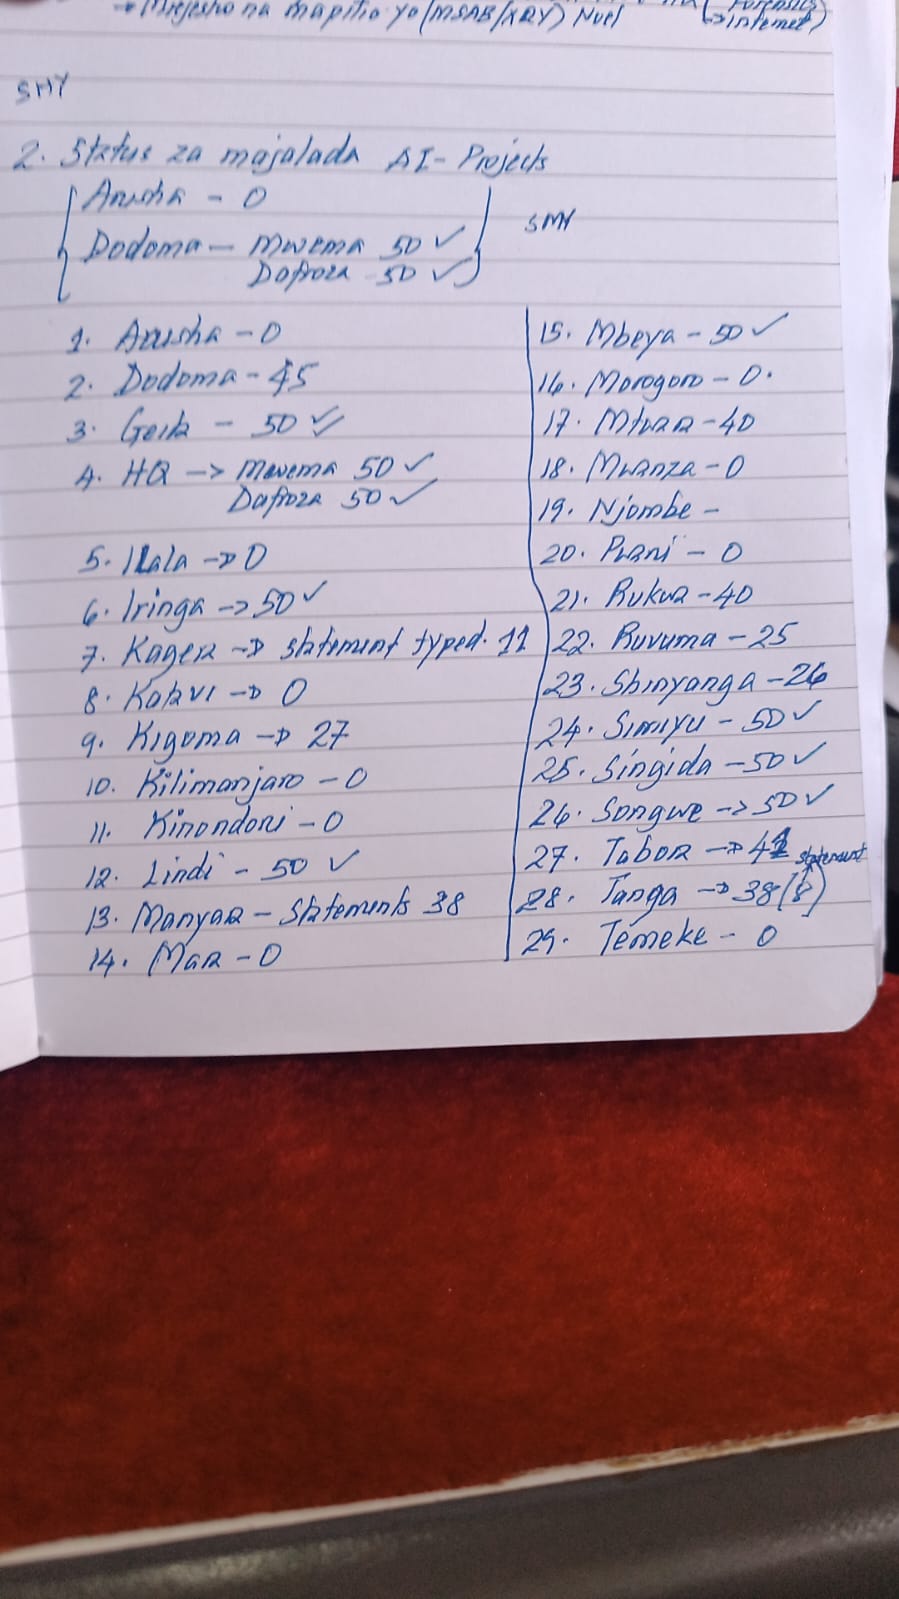 na mapitio ya (MSAB/XRY) Nuel
Forensics
internet)
SMY
2. Status za majalada AI-Projects
Arusha - 0
Dodoma - Mwema 50 ✓
Dafroza 50 ✓
SMY
1. Arusha - 0
2. Dodoma - 45
3. Geita - 50 ✓
4. HQ -> Mwema 50 ✓
Dafroza 50 ✓
5. Ilala -> 0
6. Iringa -> 50 ✓
7. Kagera -> statement typed. 11
8. Katavi -> 0
9. Kigoma -> 27
10. Kilimanjaro - 0
11. Kinondoni - 0
12. Lindi - 50 ✓
13. Manyara - Statements 38
14. Mara - 0
15. Mbeya - 50 ✓
16. Morogoro - 0.
17. Mtwara - 40
18. Mwanza - 0
19. Njombe -
20. Pwani - 0
21. Rukwa - 40
22. Ruvuma - 25
23. Shinyanga - 26
24. Simiyu - 50 ✓
25. Singida - 50 ✓
26. Songwe -> 50 ✓
27. Tabora -> 42 statement
28. Tanga -> 38 (8)
29. Temeke - 0